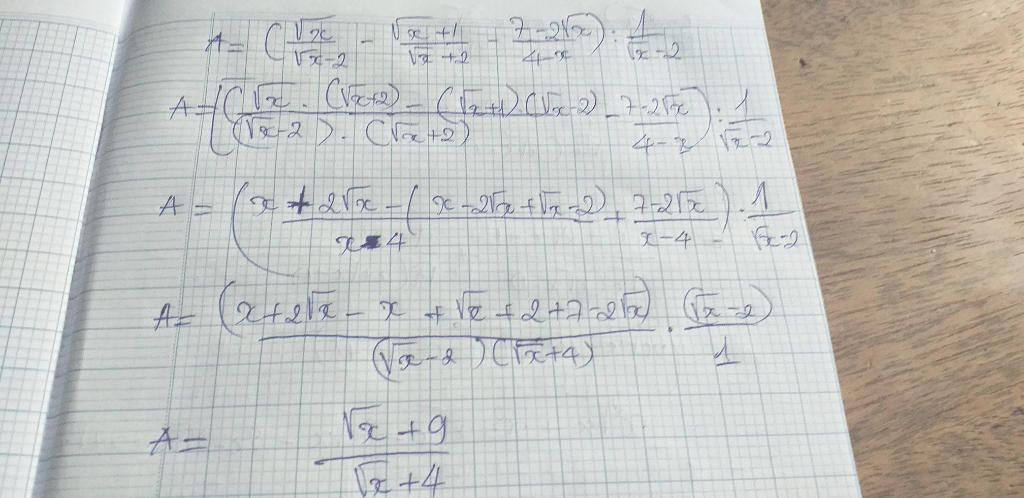 A = (√x/(√x-2) - (√x+1)/(√x+2) - (7-2√x)/(4-x)) : 1/(√x-2)
A = ((√x . (√x+2) - (√x+1)(√x-2))/((√x-2) . (√x+2)) - (7-2√x)/(4-x)) : 1/(√x-2)
A = ((x+2√x-(x-2√x+√x-2))/(x-4) + (7-2√x)/(x-4)) : 1/(√x-2)
A = (x+2√x-x+√x+2+7-2√x)/((√x-2)(√x+4)) . (√x-2)/1
A = (√x+9)/(√x+4)